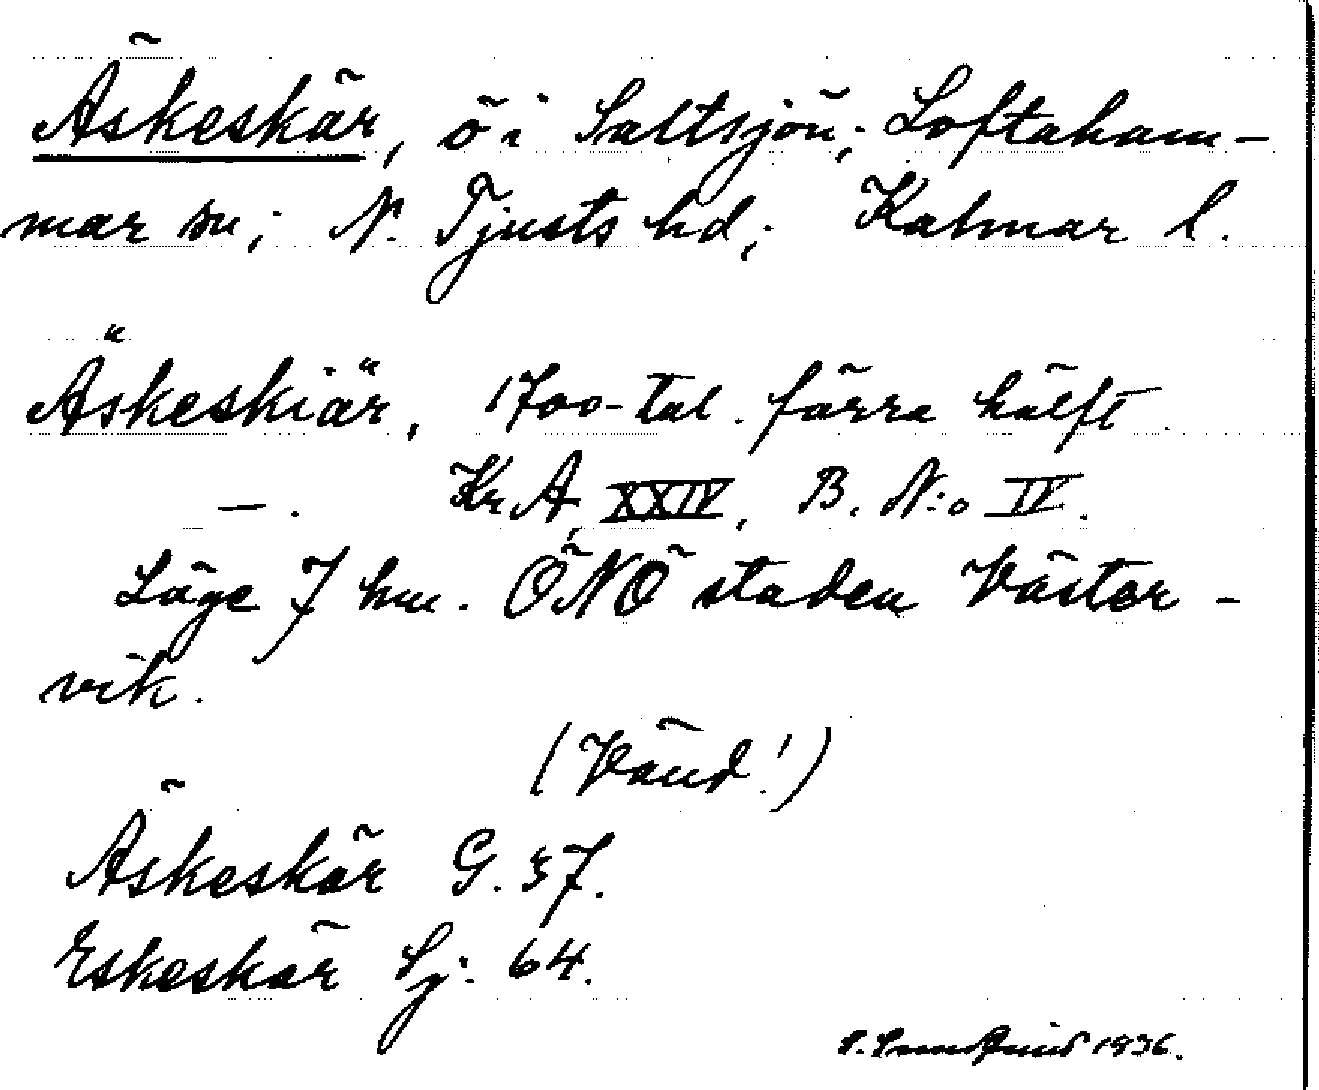 Äskeskär, ö i Saltsjön; Loftaham-
mar sn; N. Tjusts hd; Kalmar l.
Äskeskiär, 1700-tal. förra hälft.
—. Kr.A, XXIV, B. N:o IV.
Läge 7 km. ÖNÖ staden Väster-
vik.
(Vänd!)
Äskeskär G. 57.
Eskeskär Sj. 64.
1936.